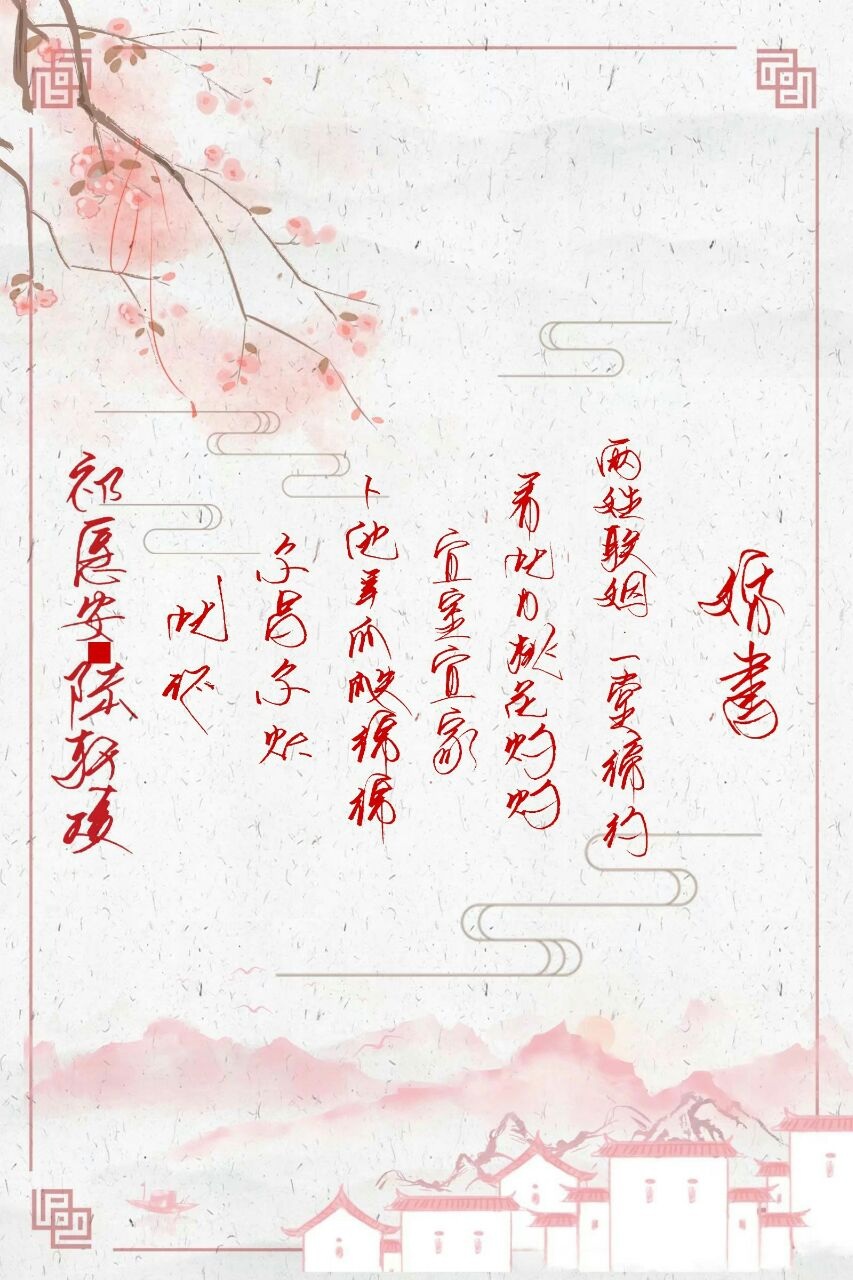 婚书
两姓联姻 一堂缔约
看此日桃花灼灼
宜室宜家
卜他年瓜瓞绵绵
尔昌尔炽
此证
祁愿安■陆轩凌